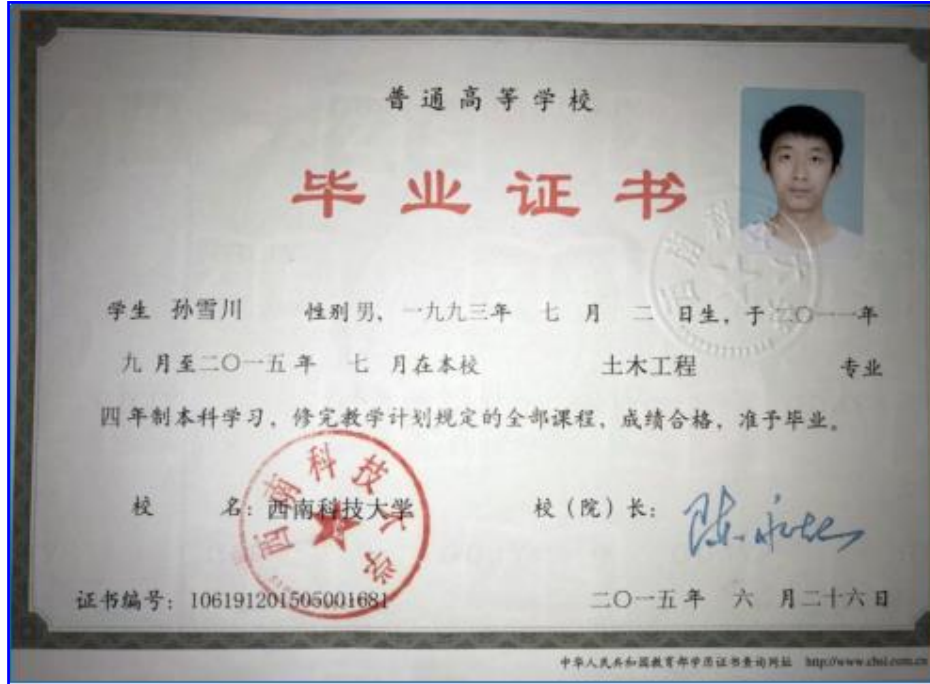 普通高等学校
毕业证书
学生 孙雪川 性别 男，一九九三年 七 月 二 日生，于二〇一一年
九 月至二〇一五年 七 月在本校 土木工程 专业
四年制本科学习，修完教学计划规定的全部课程，成绩合格，准予毕业。
校 名：西南科技大学 校（院）长：
西南科技大学
证书编号：106191201505001681 二〇一五年 六 月二十六日
中华人民共和国教育部学历证书查询网址 http://www.chsi.com.cn